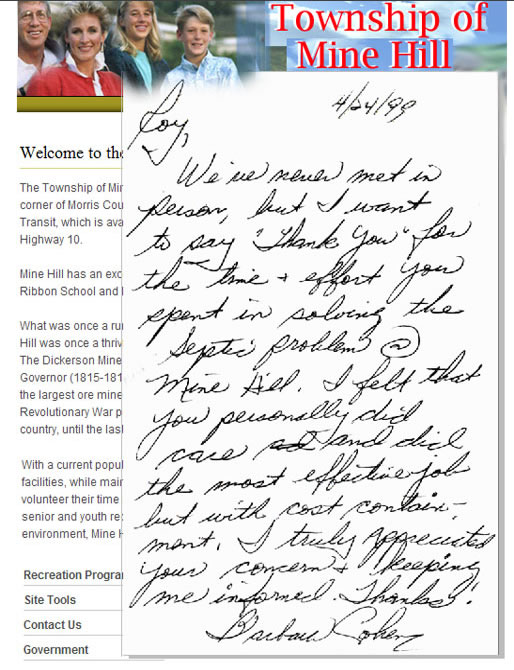 Township of
Mine Hill
4/24/99
Roy,
We've never met in
person, but I want
to say "Thank You" for
the time + effort you
spent in solving the
septic problem @
Mine Hill. I felt that
you personally did
care and did
the most effective job
but with cost contain-
ment. I truly appreciated
your concern + keeping
me informed. Thanks!
Barbara Cohen
Welcome to the
The Township of Min
corner of Morris Cou
Transit, which is ava
Highway 10.
Mine Hill has an exc
Ribbon School and
What was once a ru
Hill was once a thriv
The Dickerson Mine
Governor (1815-181
the largest ore mine
Revolutionary War p
country, until the las
With a current popul
facilities, while main
volunteer their time
senior and youth re
environment, Mine H
Recreation Progra
Site Tools
Contact Us
Government